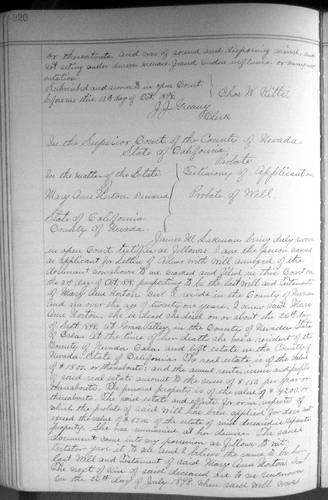 320
or thereabouts and was of sound and disposing mind, and
not acting under duress menace fraud undue influence or misrepre
sentation.
Subscribed and sworn to in open Court
before me this day of Oct
J.J. Greany
Clerk
Chas. W.
In the Superior Court of the County of Nevada
State of California
Probate
In the Matter of the Estate
of
Mary Ann Horton Deceased
Testimony of Applicant on
Probate of Will.
State of California
County of Nevada.
James M. being duly sworn
in open Court testifies as follows: I am the person named
as applicant for letters of Admr with Will annexed of the
document now shown to me marked and filed in this Court on
the day of Oct. 1898. purporting to be the last Will and Testament
of Mary Ann Horton decd I reside in the County of Nevada
and am over the age of twenty one years. I knew said Mary
Ann Horton. she is dead she died on or about the 26th day
of Sept 1898. at Grass Valley in the County of Nevada State
of Calar At the time of her death she was a resident of the
County of Nevada Calar. and left estate in the County of
Nevada. State of California. The real estate is of the value
of $1500. or thereabouts: and the annual rents, issues and profits
of said real estate amount to the sum of $150 per year or
thereabouts. The personal property is of the value of $4200 or
thereabouts. The said estate and effects for or in respect of
which the probate of said Will has been applied for does not
exceed the value of of the estate of said deceased is separate
property. She was unmarried at her demise. The said
document came into my possession as follows to wit:
testator gave it to me and I believe the same to be her
last Will and Testament of said Mary Ann Horton decd
The next of kin of said deceased are to me unknown
on the 22 day of July 1898. when said Will